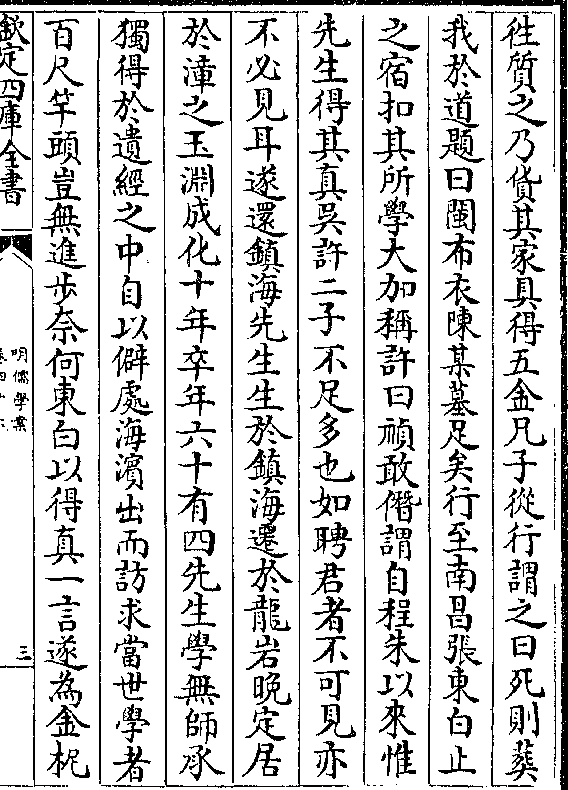 往質之乃貨其家具得五金凡子從行謂之曰死則葬
我於道題曰閩布衣陳某墓足矣行至南昌張東白止
之宿扣其所學大加稱許曰禎敢僭謂自程朱以來惟
先生得其真吳許二子不足多也如聘君者不可見亦
不必見耳遂還鎮海先生生於鎮海遷於龍岩晚定居
於漳之玉淵成化十年卒年六十有四先生學無師承
獨得於遺經之中自以僻處海濱出而訪求當世學者
百尺竿頭豈無進步奈何東白以得真一言遂為金柅
欽定四庫全書
明儒學案
三